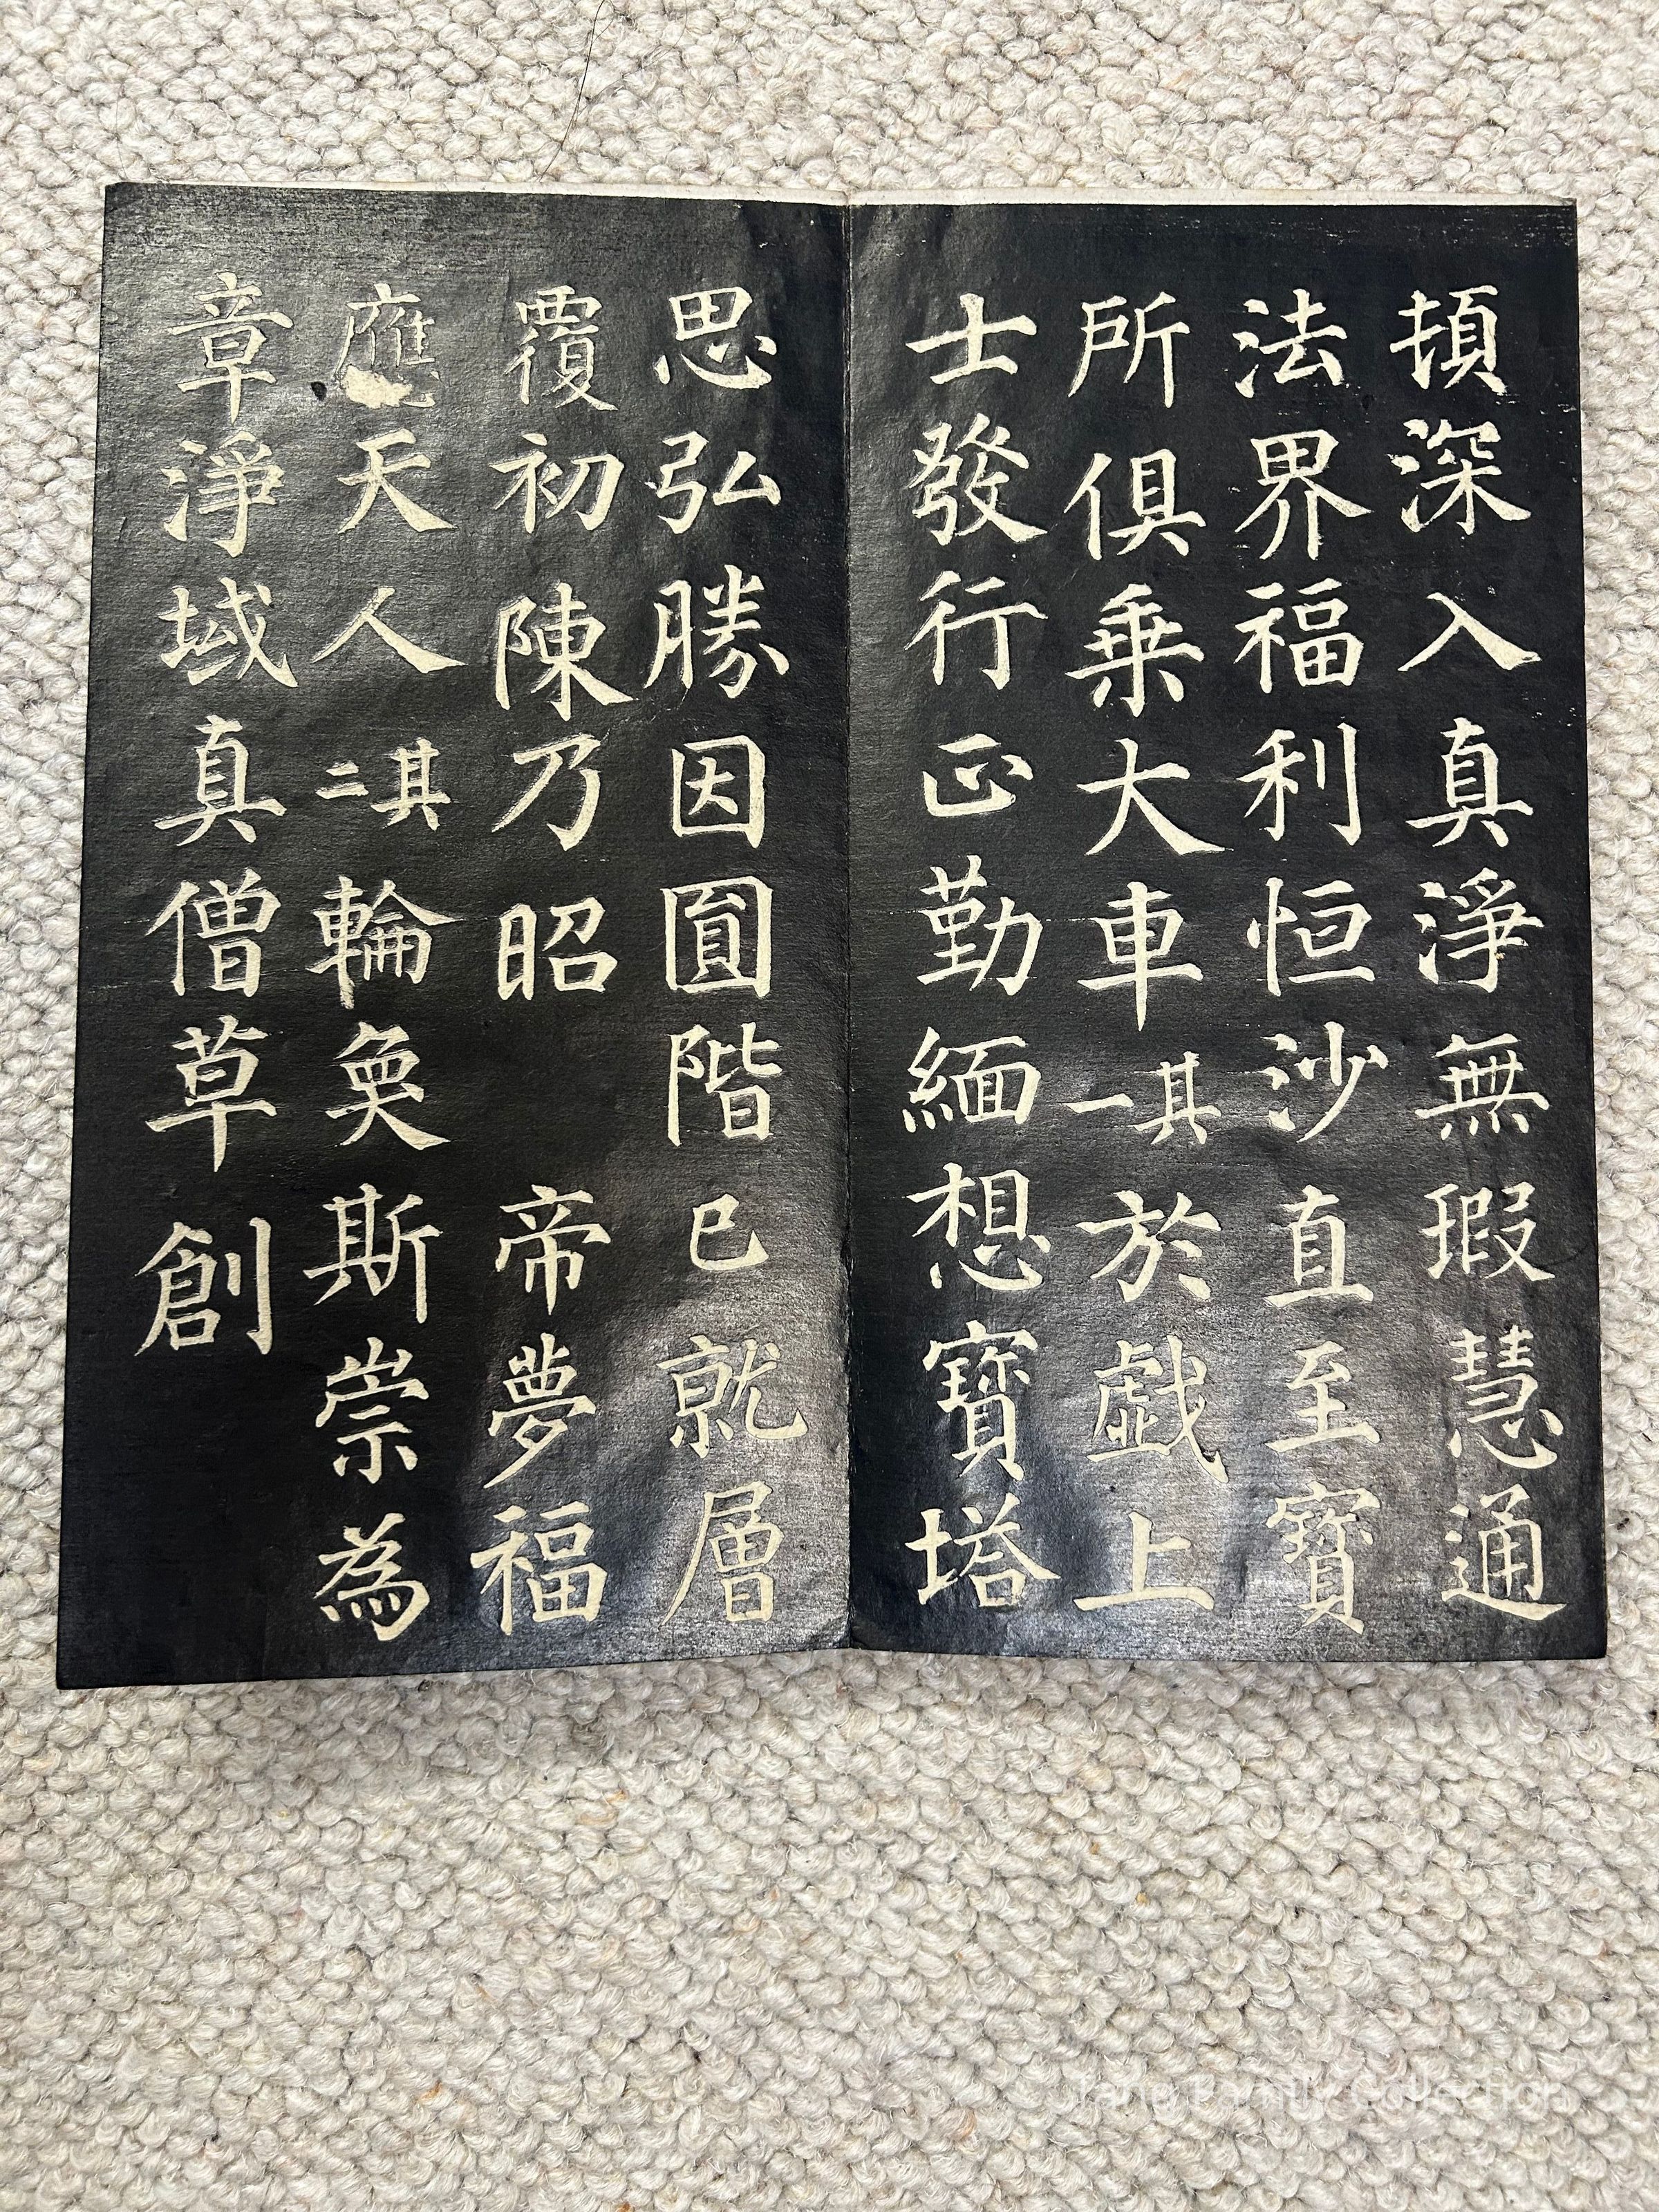 頓深入真淨無瑕慧通
法界福利恒沙直至寶
所俱乗大車其一於戱上
士發行正勤緬想寶塔
思弘勝因圎階已就層
覆初陳乃昭帝夢福
應天人其二輪奐斯崇為
章淨域真僧草創
Tang Family Collection